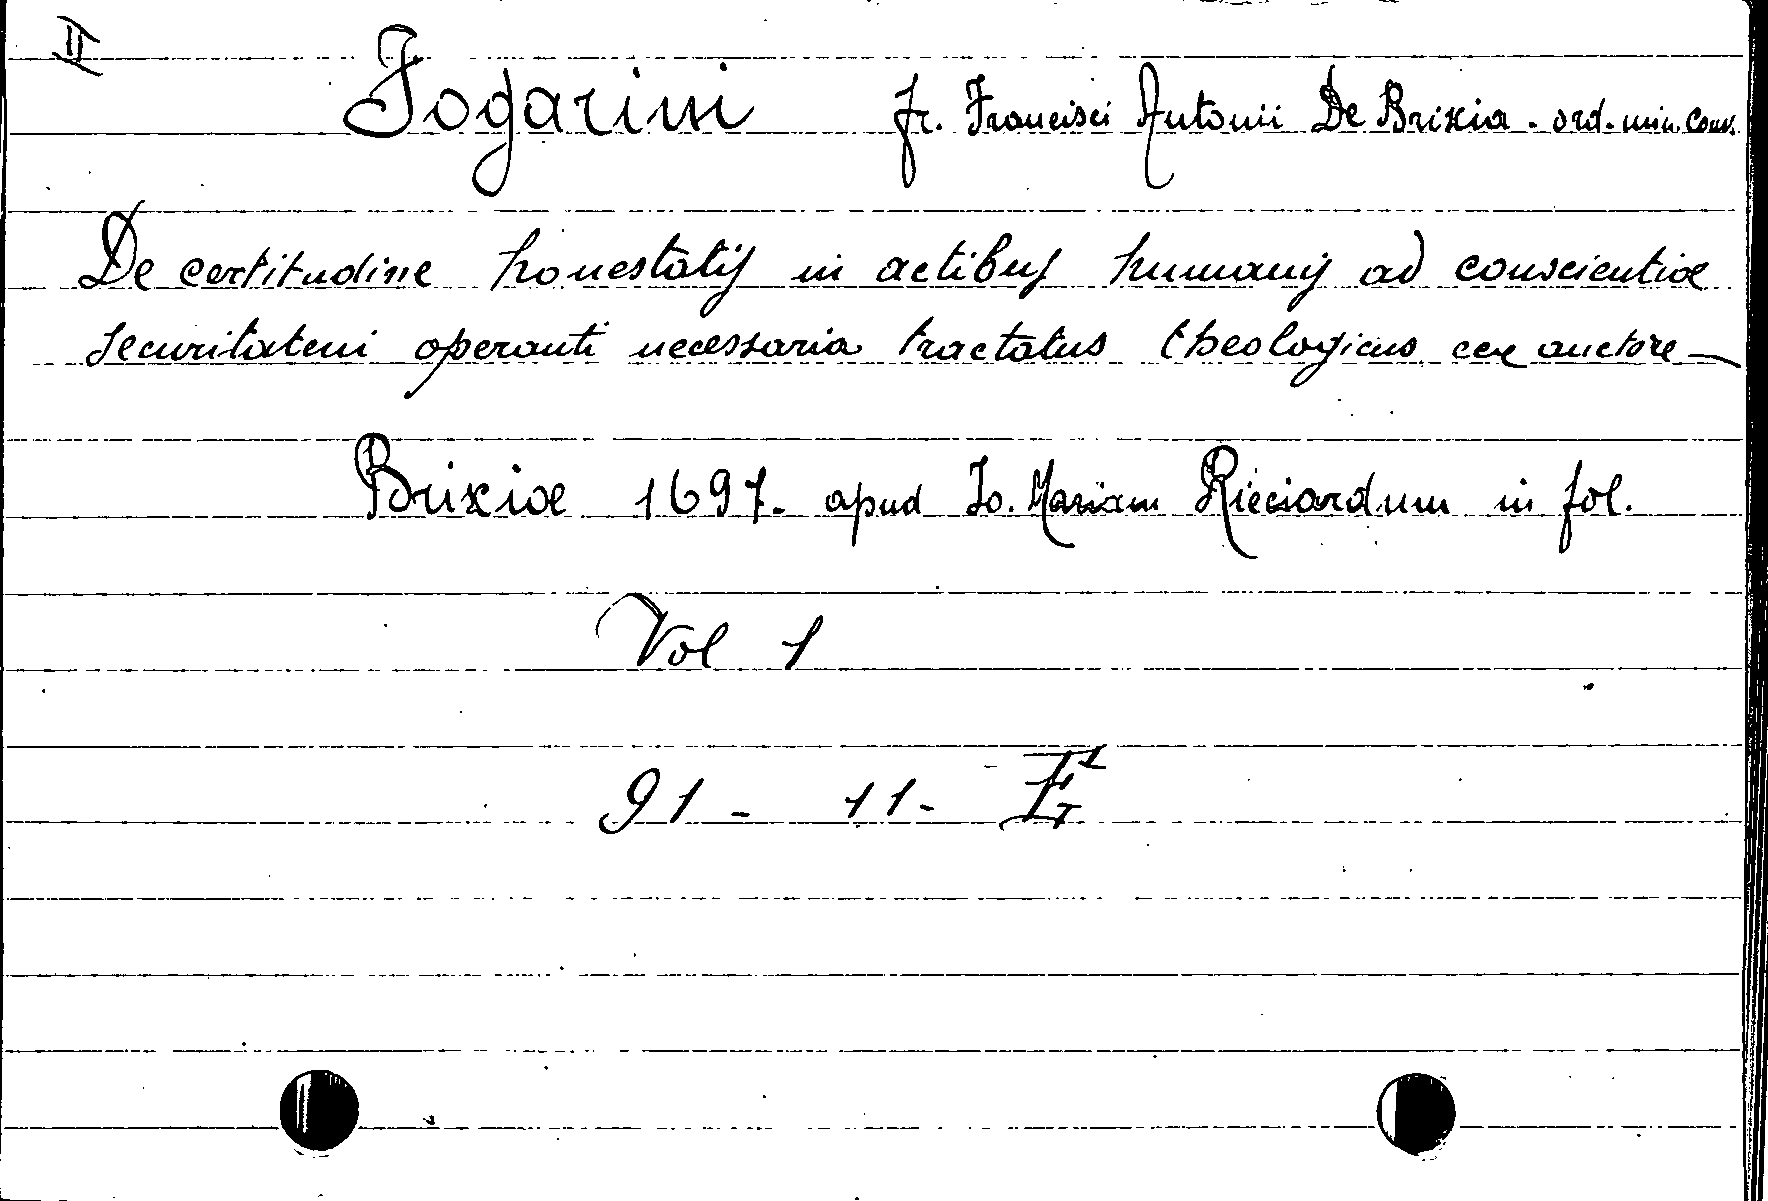 II
Fogarini fr. Francisci Antonii De Brixia. ord. min. Conv.
De certitudine honestatis in actibus humanis ad conscientiæ
securitatem operanti necessaria tractatus theologicus auctore —
Brixiæ 1697. apud Jo. Mariam Ricciardum in fol.
Vol 1
91 - 11 -